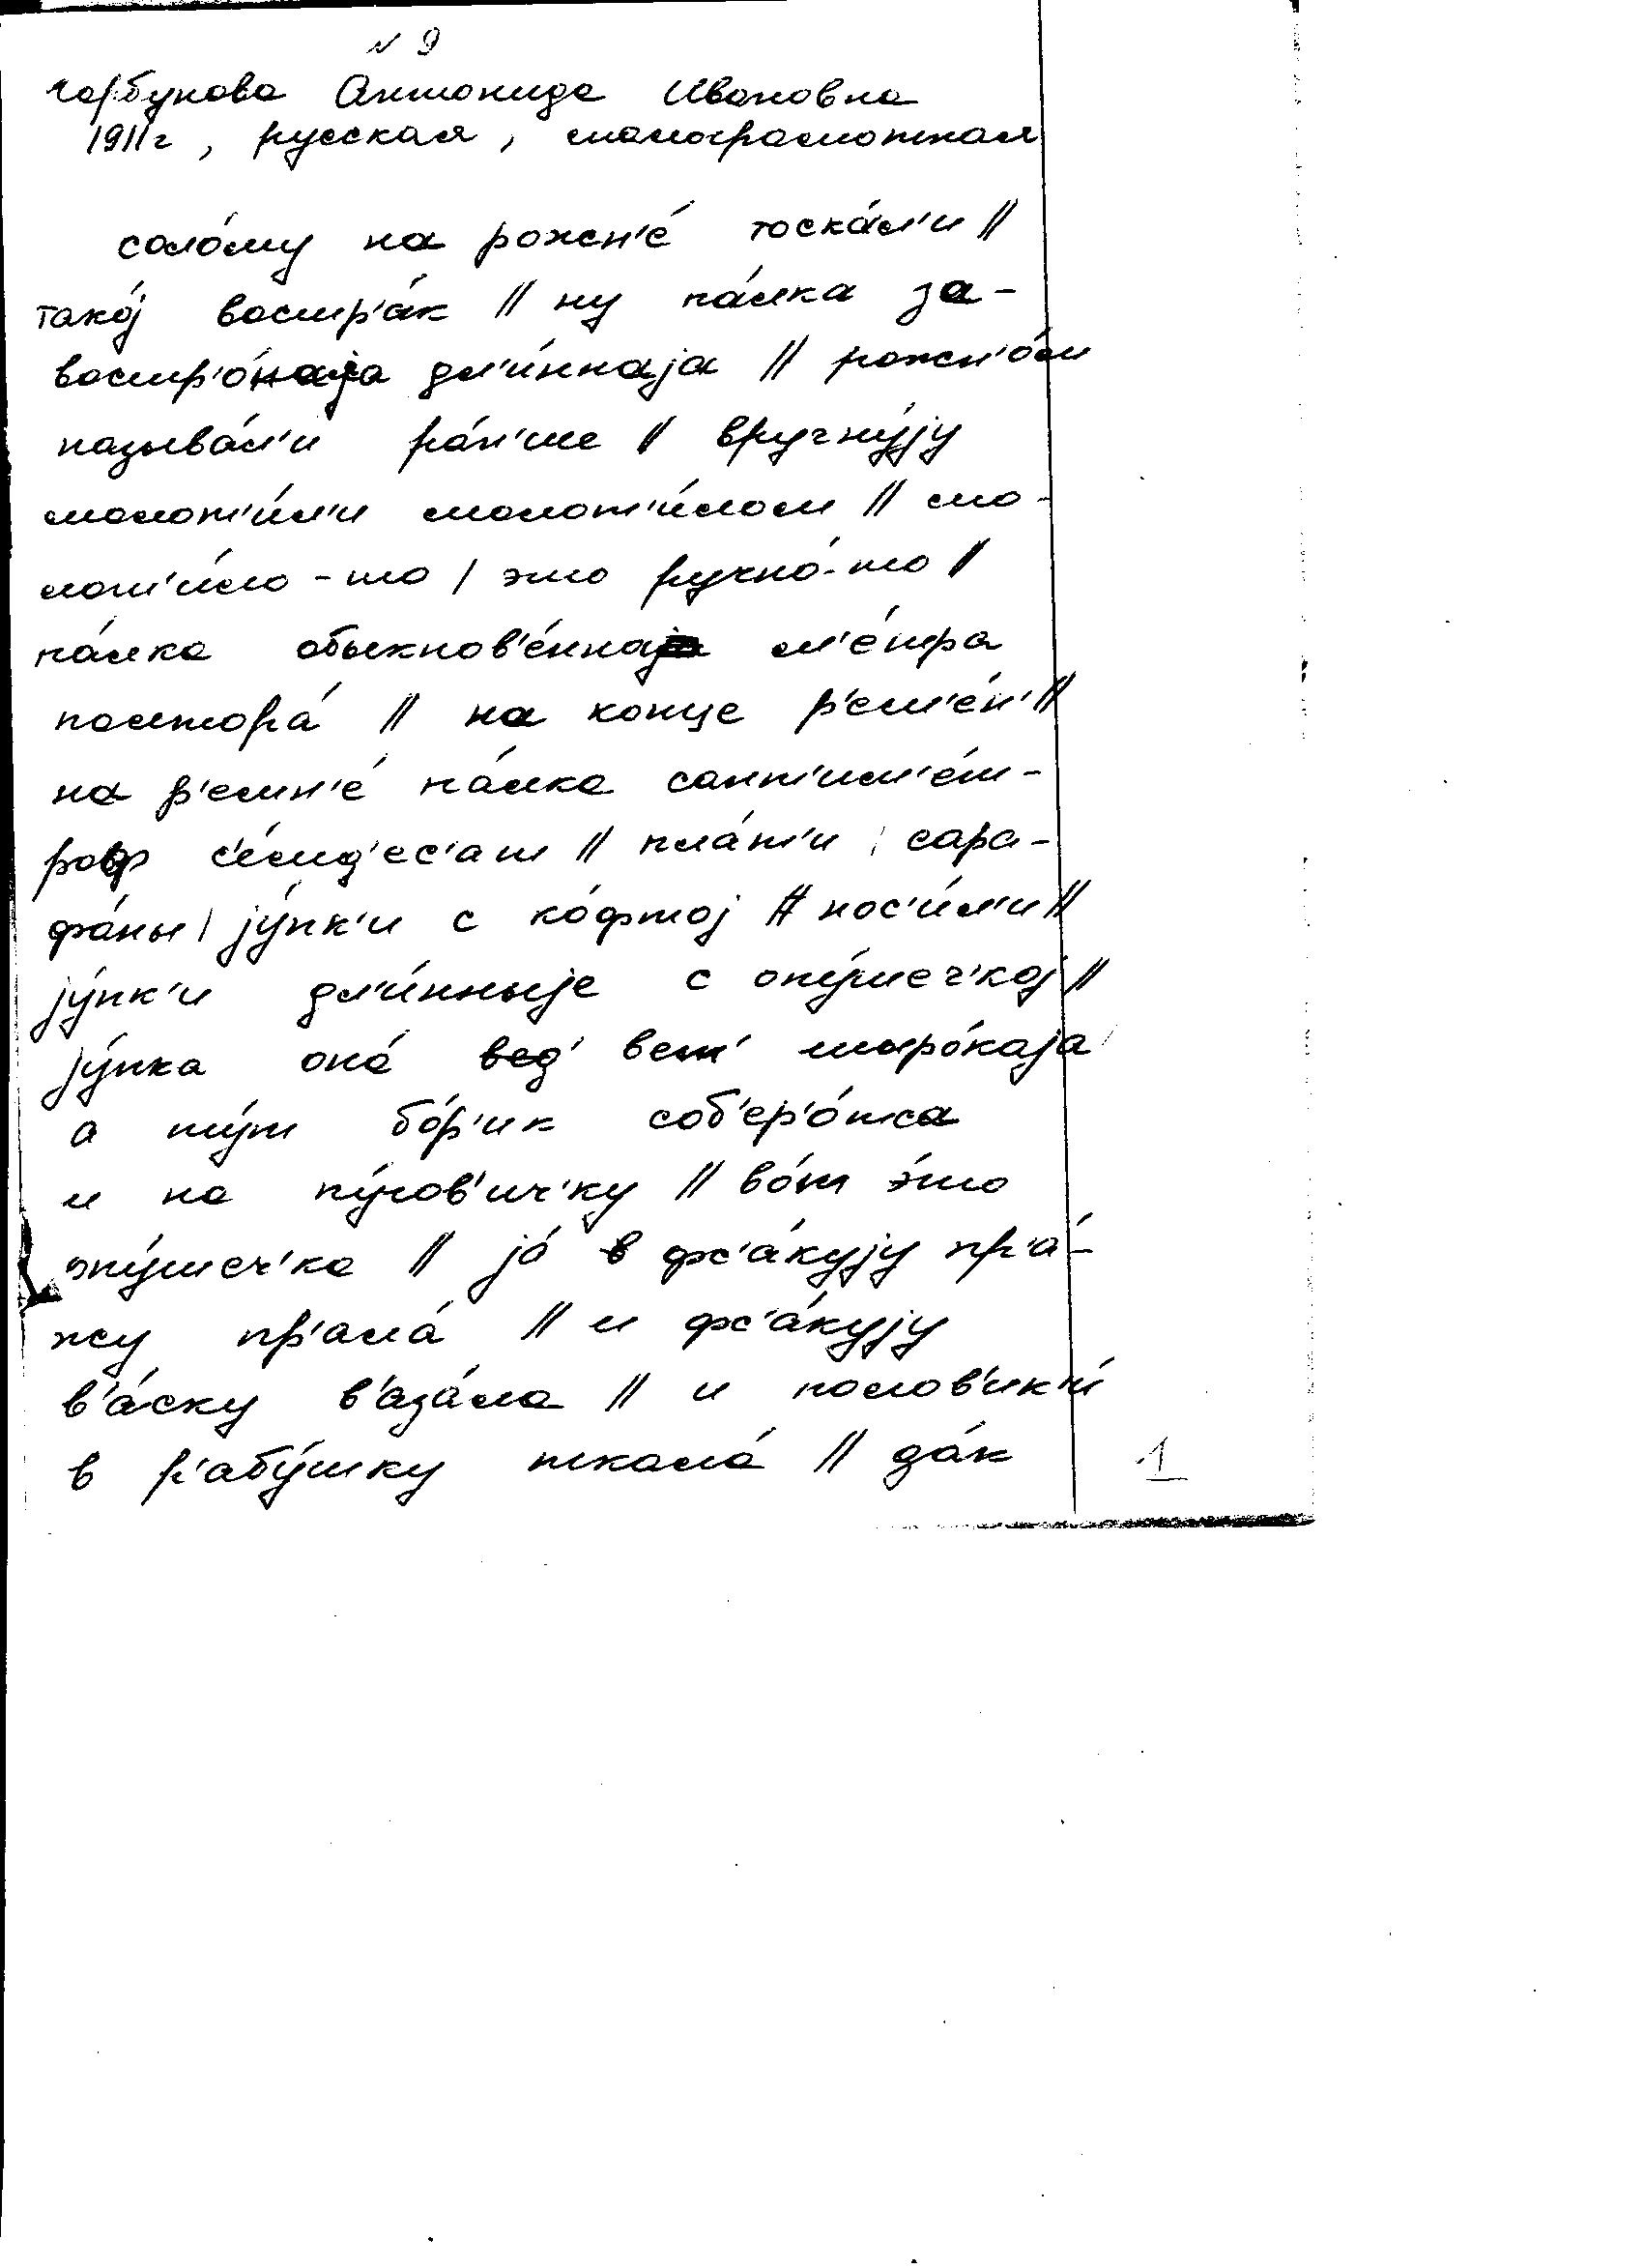 № 9
Горбунова Антонида Ивановна
1911г, русская, малограмотная
соло́му на рожн'е́ тоска́л'и //
тако́j востр'а́к // ну па́лка за-
востр'о́наjа дл'и́ннаjа // рожн'о́м
называ́л'и ра́н'ше // вручну́jу
молот'и́л'и молот'и́лом // мо-
лот'и́ло-то / это ручно́-то //
па́лка обыкнов'е́ннаjа м'е́тра
полтора́ // на конце р'ем'е́н' //
на р'емн'е́ па́лка сант'им'е́т-
роф с'е́мд'ес'ат // пла́т'и / сара-
фа́ны / jу́пк'и с ко́фтоj // нос'и́л'и //
jу́пк'и дл'и́нныjе с опу́шеч'коj //
jу́пка она́ вед' вет' широ́каjа
а ту́т бо́р'ик соб'ер'о́тса
и на пу́гов'ич'ку // во́т э́то
опу́шеч'ка // jа́ в фс'а́куjу пр'а́-
жу пр'ала́ // и фс'а́куjу
в'а́ску в'аза́ла // и полов'ик'и́
в р'абу́шку ткала́ // да́к
1